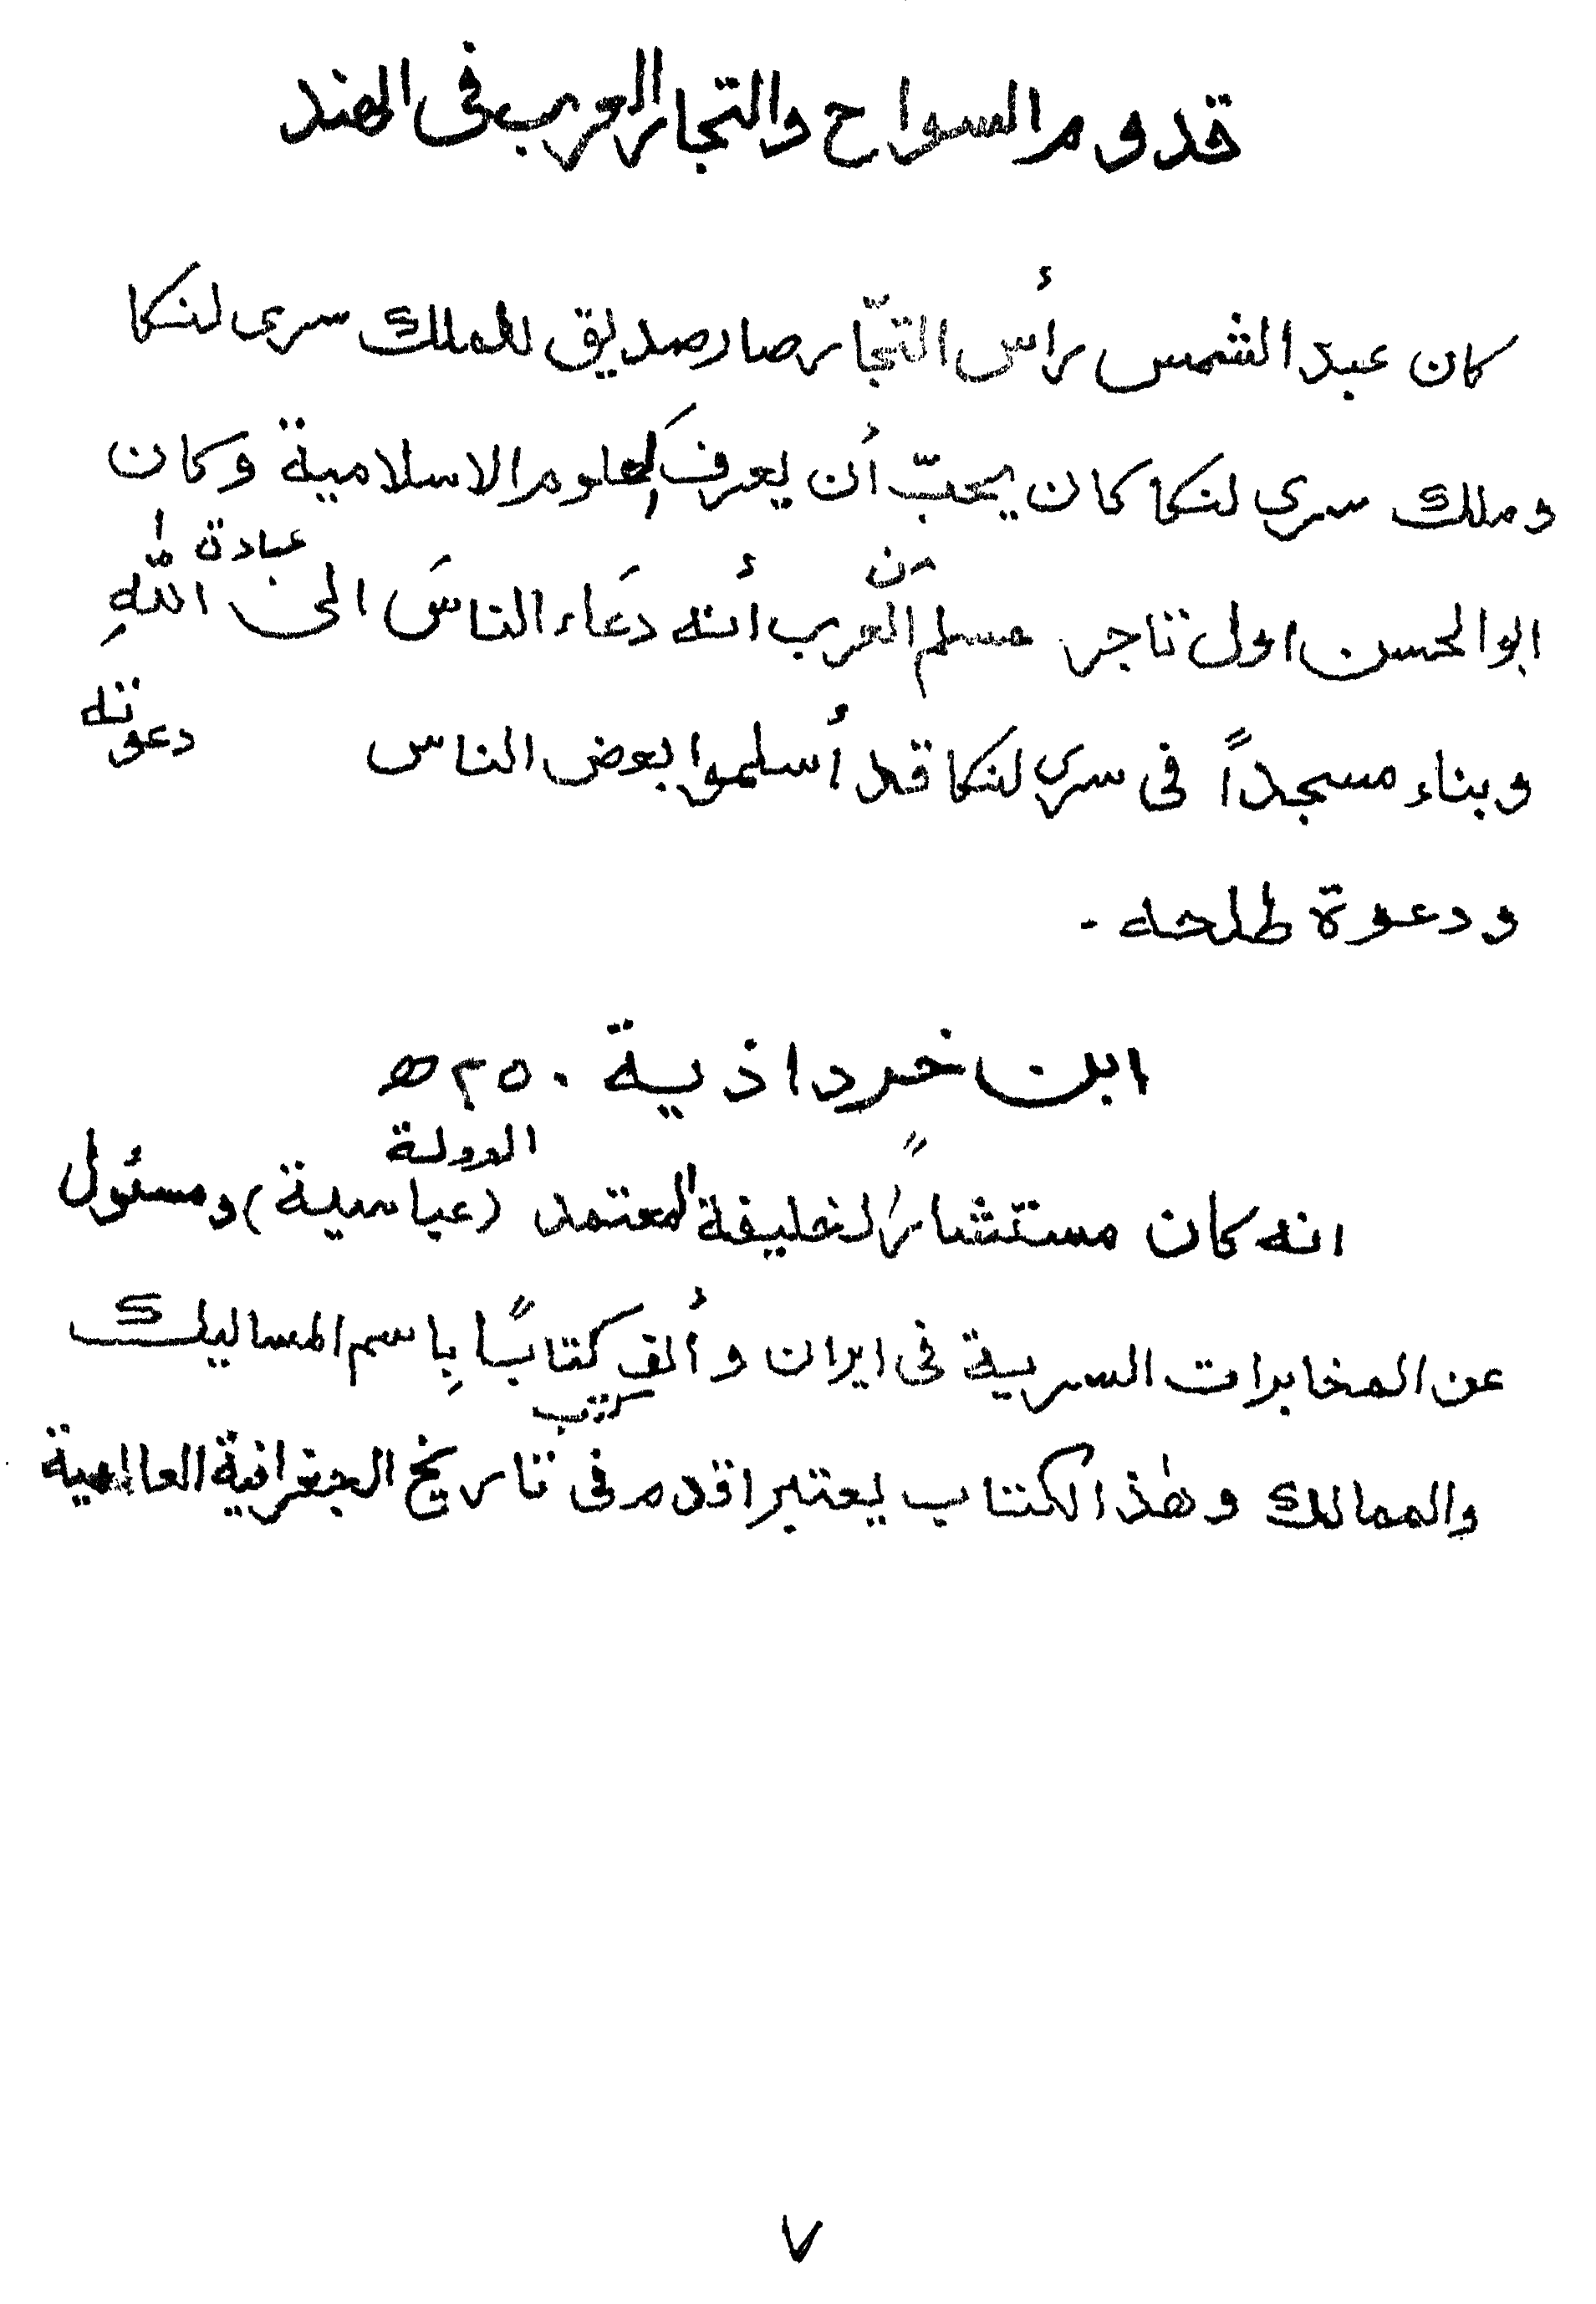 قدوم السواح والتجار العرب فى الهند
كان عبد الشمس رأس التجّار صار صديق للملك سرى لنكا
وملك سرى لنكا كان يحبّ أن يعرف العلوم الاسلامية وكان
ابوالحسن اول تاجر مسلم من العرب أنه دَعَاء الناسَ الى عبادة اللهِ
وبناء مسجداً فى سرى لنكا قد أسلموا بعض الناس دعوته
ودعوة طلحه -
ابن خرداذية ٢٥٠ ھ
انه كان مستشارً الخليفة المعتمد (الدولة عباسية) ومسئول
عن المخابرات السرية فى ايران وألف كتابًا بِاسم المساليك
والممالك وهٰذا الكتاب يعتبر اقدم فى كتب تاريخ الجغرافية العالمية
٧